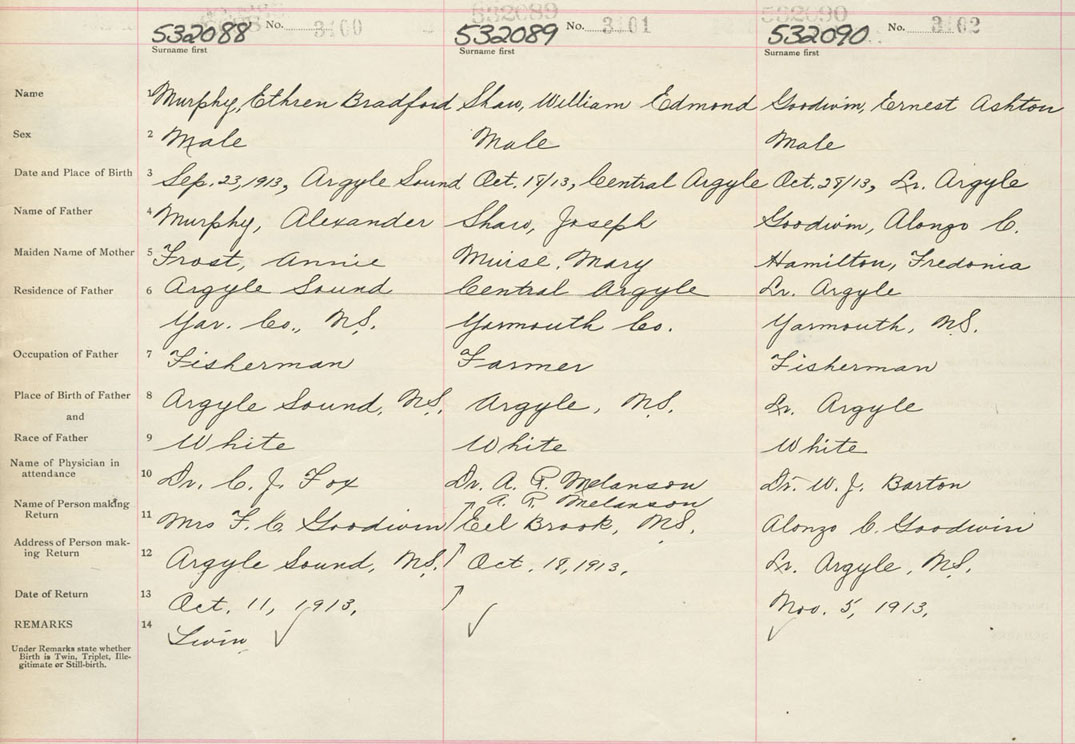 532088 No. 3100 532089 No. 3101 532090 No. 3102
Surname first Surname first Surname first
Name 1 Murphy, Ethren Bradford Shaw, William Edmond Goodwin, Ernest Ashton
Sex 2 Male Male Male
Date and Place of Birth 3 Sep. 23, 1913, Argyle Sound Oct. 18/13, Central Argyle Oct. 28/13, Lr. Argyle
Name of Father 4 Murphy, Alexander Shaw, Joseph Goodwin, Alonzo C.
Maiden Name of Mother 5 Frost, Annie Muise, Mary Hamilton, Fredonia
Residence of Father 6 Argyle Sound Central Argyle Lr. Argyle
Yar. Co., N.S. Yarmouth Co. Yarmouth, N.S.
Occupation of Father 7 Fisherman Farmer Fisherman
Place of Birth of Father 8 Argyle Sound, N.S. Argyle, N.S. Lr. Argyle
and
Race of Father 9 White White White
Name of Physician in
attendance 10 Dr. C. J. Fox Dr. A. P. Melanson Dr. W. J. Barton
A. P. Melanson
Name of Person making
Return 11 Mrs F. C. Goodwin Eel Brook, N.S. Alonzo C. Goodwin
Address of Person mak-
ing Return 12 Argyle Sound, N.S. Oct. 18, 1913, Lr. Argyle, N.S.
Date of Return 13 Oct. 11, 1913, Nov. 5, 1913,
REMARKS 14
Under Remarks state whether
Birth is Twin, Triplet, Ille-
gitimate or Still-birth.